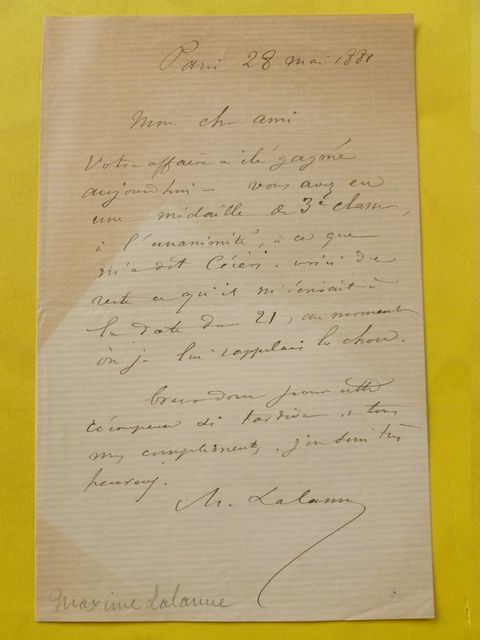 Paris 28 mai 1881
Mon cher ami
Votre affaire a été gagnée
aujourd'hui – vous avez eu
une médaille de 3e classe,
à l'unanimité, à ce que
m'a dit Cérésy. voici du
reste ce qu'il m'écrivait à
la date du 21, au moment
où je lui rappelais la chose.
bravo donc pour cette
récompense si tardive et tous
mes compliments. j'en suis très
heureux.
M. Lalanne
Maxime Lalanne